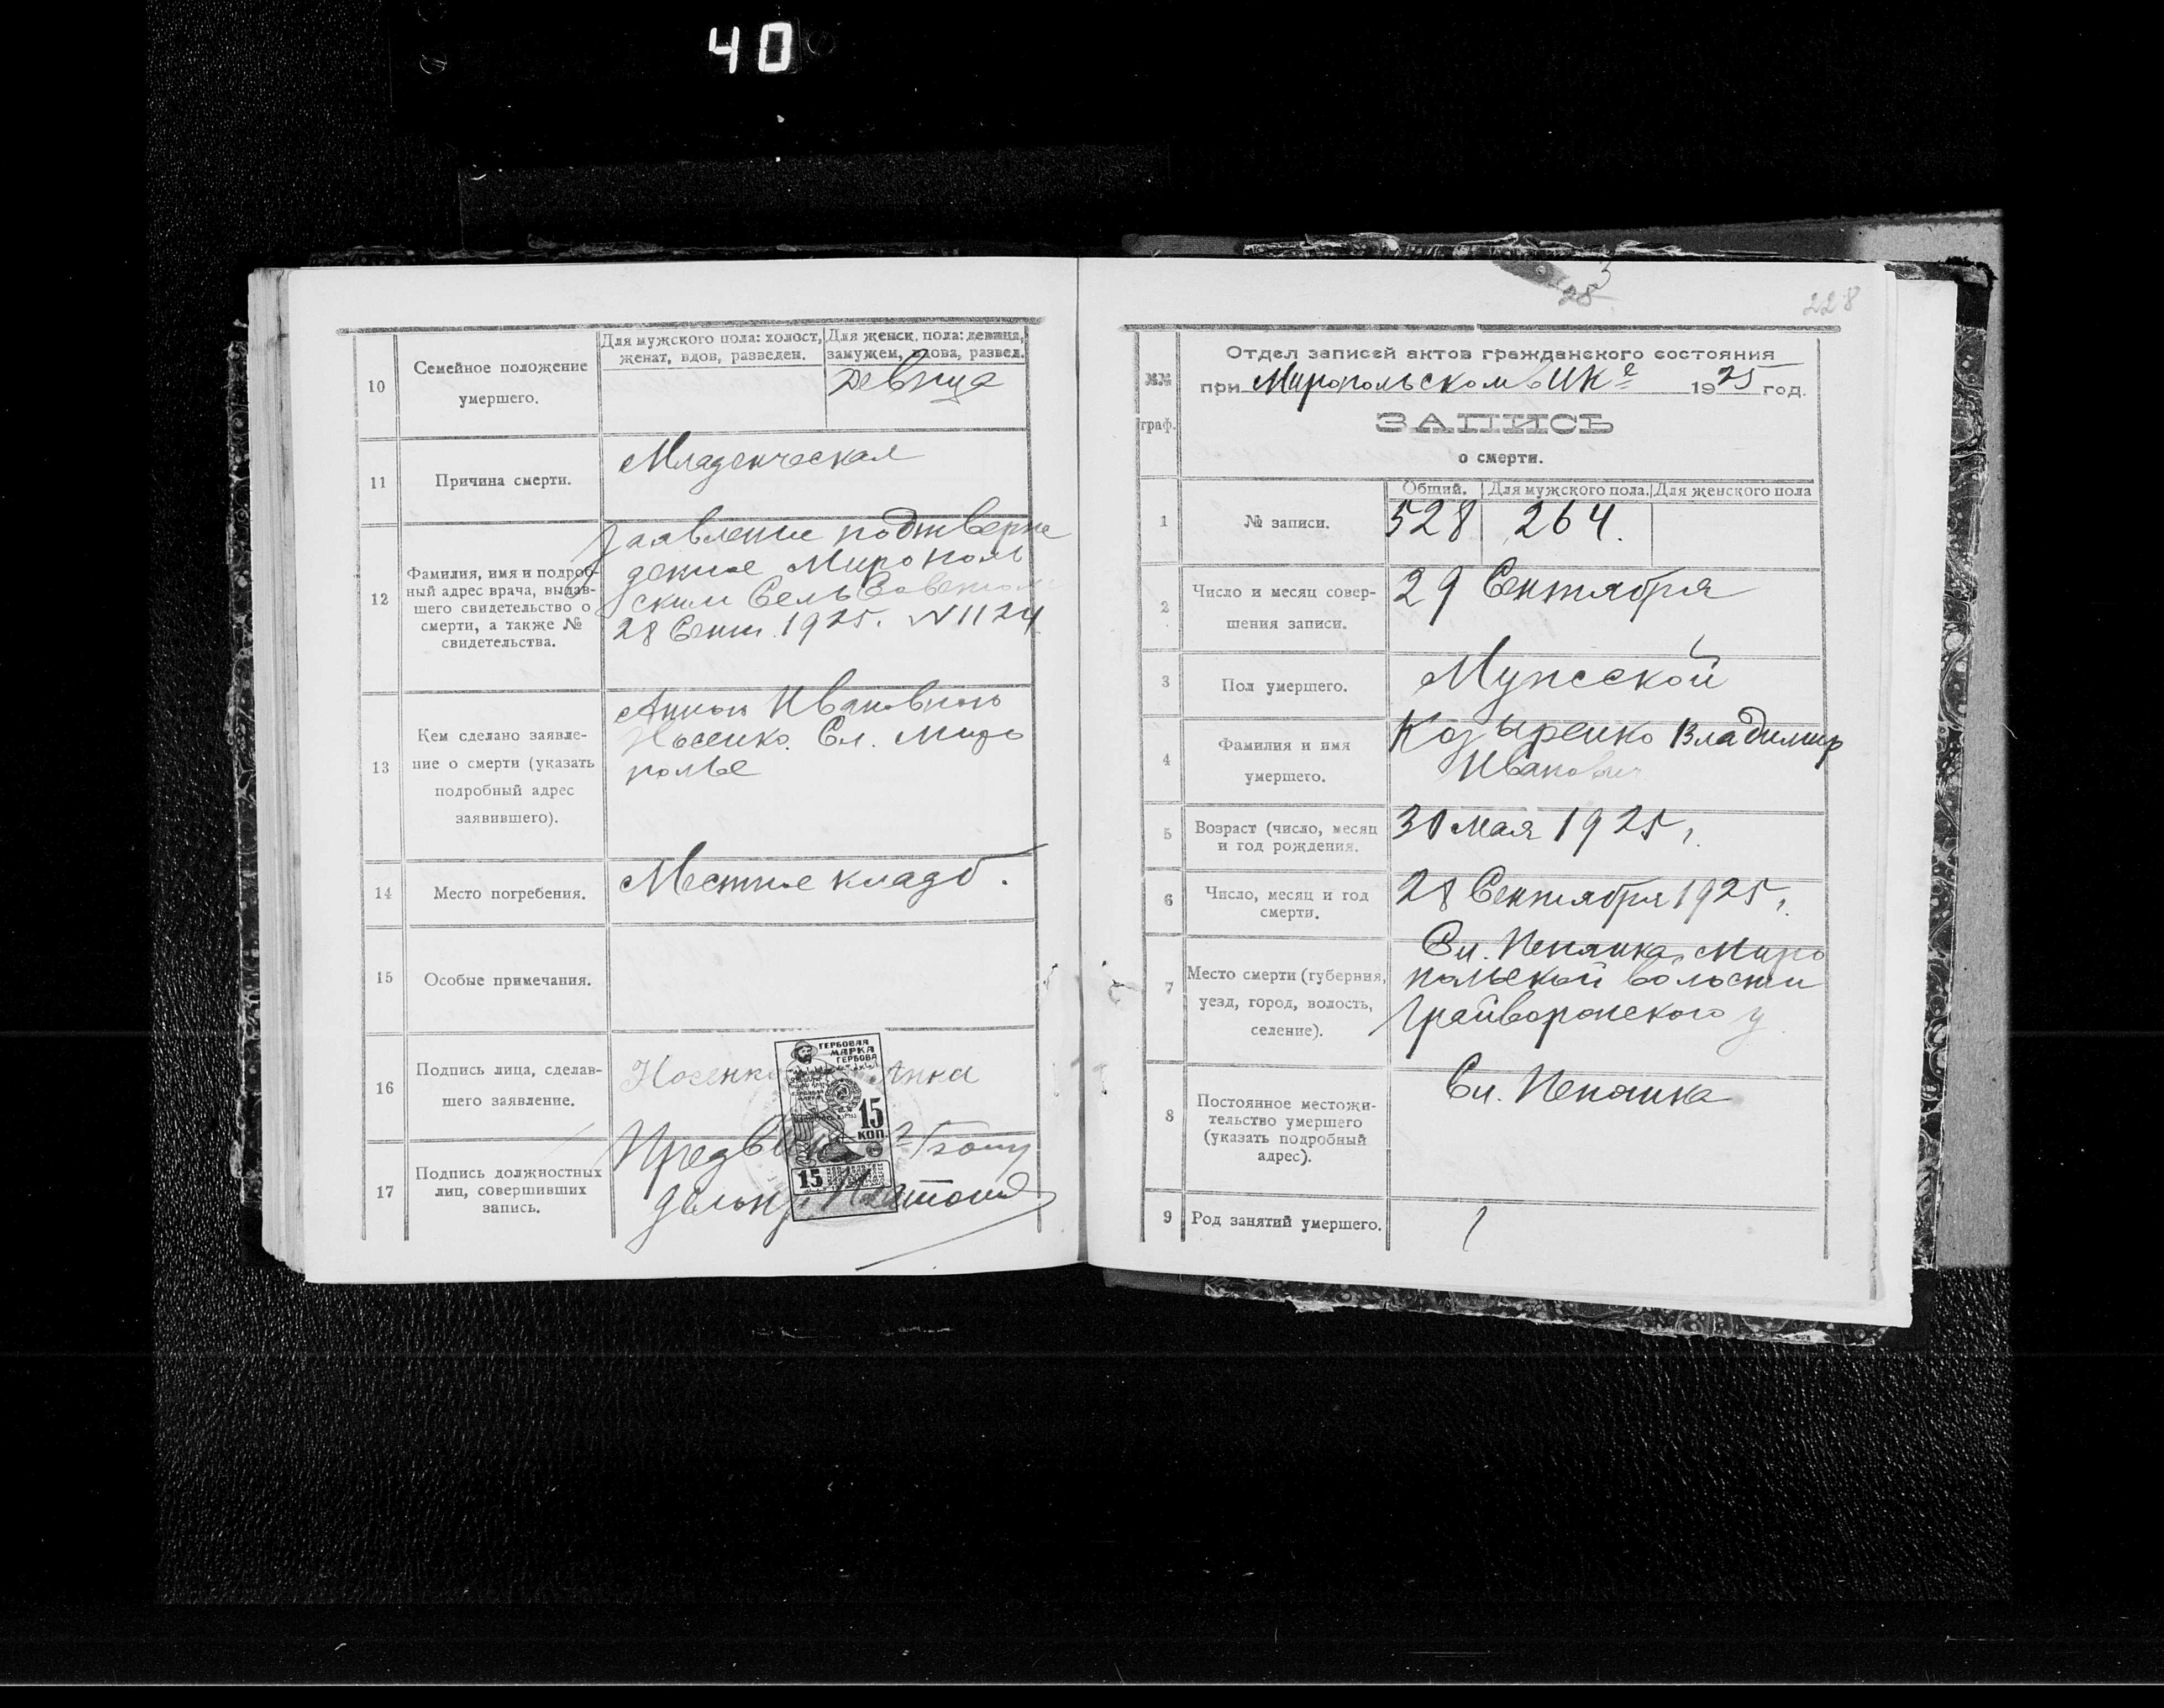 40
10
Семейное положение
умершего.
Для мужского пола: холост,
женат, вдов, разведен.
Для женск. пола: девица,
замужем, вдова, развед.
Девица
11
Причина смерти.
Младенческая
12
Фамилия, имя и подроб-
ный адрес врача, выдав-
шего свидетельство о
смерти, а также №
свидетельства.
Заявление подтверж
дение Мирополь
ским СельСоветом
28 Сент. 1925. N 1124
13
Кем сделано заявле-
ние о смерти (указать
подробный адрес
заявившего).
Анной Ивановной
Носенко. Сл. Миро
полье
14
Место погребения.
Местное кладб.
15
Особые примечания.
16
Подпись лица, сделав-
шего заявление.
Носенко Анна
17
Подпись должностных
лиц, совершивших
запись.
ГЕРБОВАЯ
МАРКА
ГЕРБОВА
15
КОП.
15
28
228
№№
граф.
Отдел записей актов гражданского состояния
при Миропольском ВИКе 1925 год.
ЗАПИСЬ
о смерти.
1
№ записи.
Общий. Для мужского пола. Для женского пола
528 264.
2
Число и месяц совер-
шения записи.
29 Сентября
3
Пол умершего.
Мужеской
4
Фамилия и имя
умершего.
Козыренко Владимир
Иванович
5
Возраст (число, месяц
и год рождения.
30 мая 1925 г.
6
Число, месяц и год
смерти.
28 Сентября 1925 г.
7
Место смерти (губерния,
уезд, город, волость,
селение).
Сл. Пенянка Миро
польской волости
Грайворонского у
8
Постоянное местожи-
тельство умершего
(указать подробный
адрес).
Сл. Пенянка
9
Род занятий умершего.